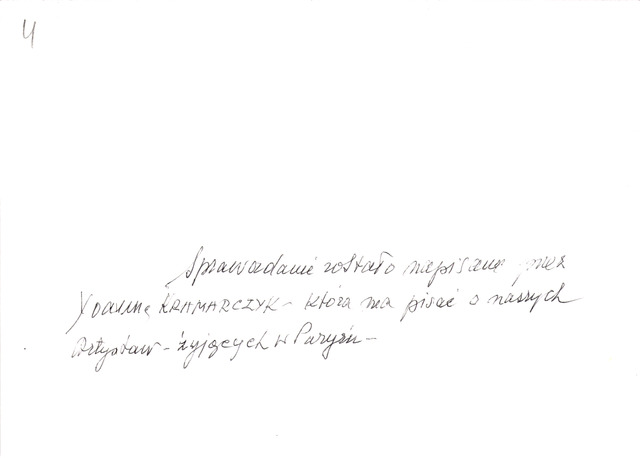 4
Sprawozdanie zostało napisane przez
Joannę KRAMARCZYK - która ma pisać o naszych
Artystach - żyjących w Paryżu -